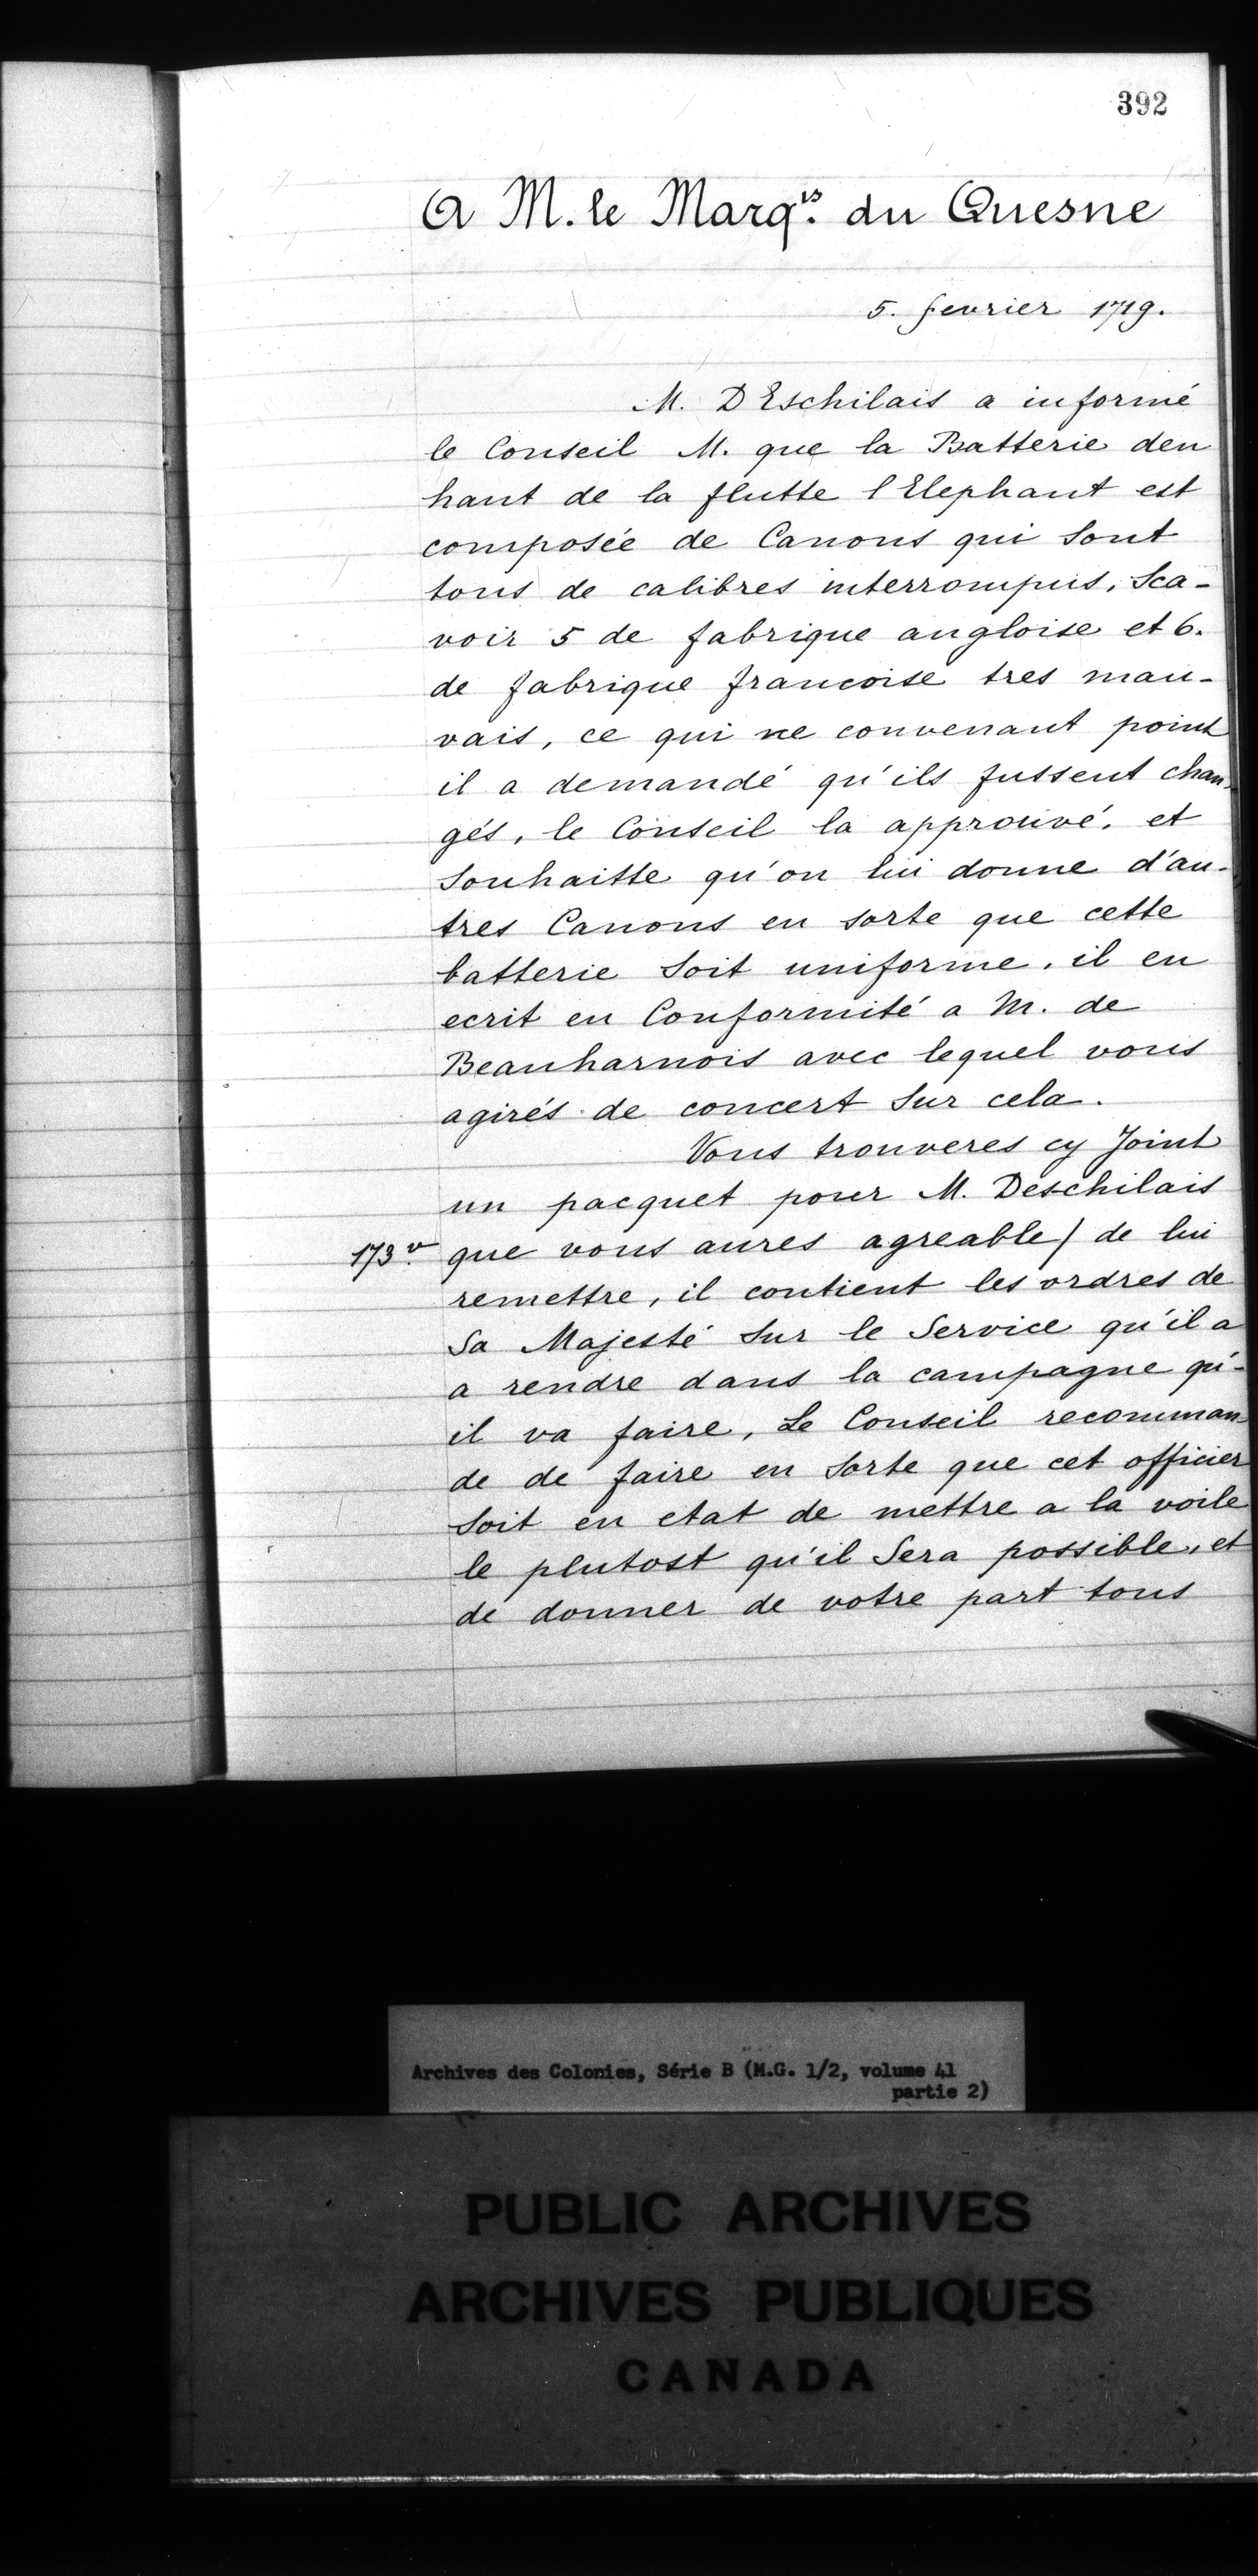 392
A M. le Marq.is du Quesne
5. fevrier 1719.
M. D Eschilais a informé
le Conseil M. que la Batterie den
haut de la flutte l Elephant est
composée de Canons qui sont
tous de calibres interrompus, Sca-
voir 5 de fabrique angloise et 6.
de fabrique francoise tres mau-
vais, ce qui ne convenant point
il a demandé qu'ils fussent chan-
gés, le Conseil la approuvé, et
souhaitte qu'on lui donne d'au-
tres Canons en sorte que cette
batterie soit uniforme. il en
ecrit en Conformité a M. de
Beauharnois avec lequel vous
agirés de concert sur cela.
Vous trouveres cy Joint
un pacquet pour M. Deschilais
173 v. que vous aures agreable / de lui
remettre, il contient les ordres de
Sa Majesté sur le Service qu'il a
a rendre dans la campagne qu'-
il va faire, Le Conseil recomman-
de de faire en sorte que cet officier
soit en etat de mettre a la voile
le plutost qu'il sera possible, et
de donner de votre part tous
Archives des Colonies, Série B (M.G. 1/2, volume 41
partie 2)
PUBLIC ARCHIVES
ARCHIVES PUBLIQUES
CANADA